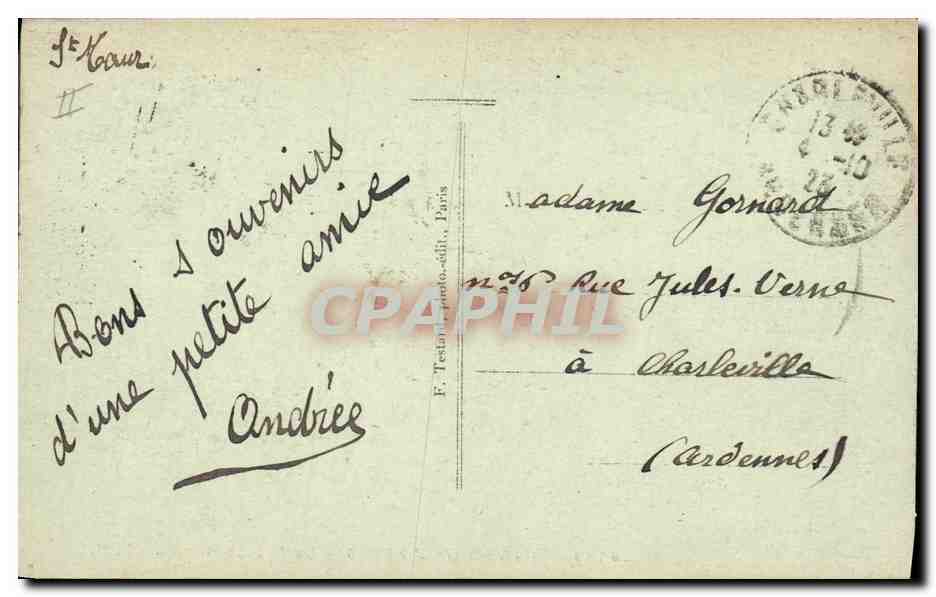 St Maur
II
Bons souvenirs
d'une petite amie
Andrée
F. Testard, photo.-édit., Paris
CHARLEVILLE
13
4 -10
23
Madame Gornard
Rue Jules-Verne
à Charleville
(Ardennes)
CPAPHIL